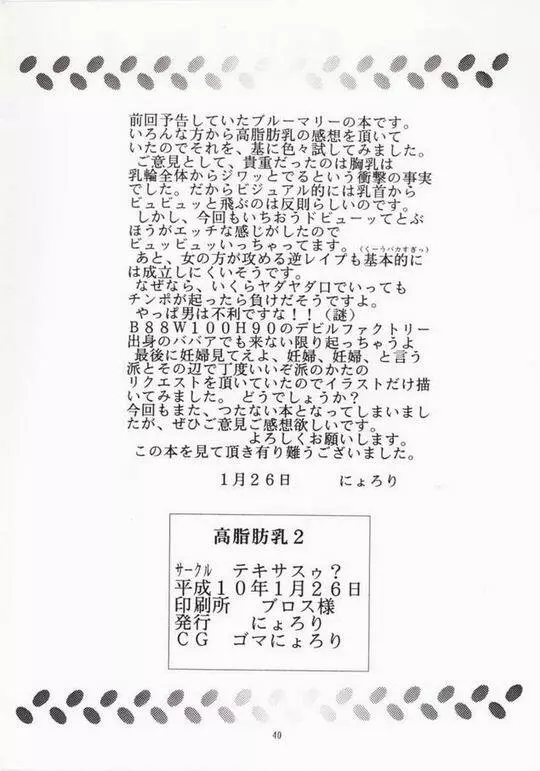 前回予告していたブルーマリーの本です。
いろんな方から高脂肪乳の感想を頂いて
いたのでそれを、基に色々試してみました。
ご意見として、貴重だったのは胸乳は
乳輪全体からジワッとでるという衝撃の事実
でした。だからビジュアル的には乳首から
ビュビュッと飛ぶのは反則らしいのです。
しかし、今回もいちおうドビューッてとぶ
ほうがエッチな感じがしたので
ビュッビュッいっちゃってます。（くーうバカすぎっ）
あと、女の方が攻める逆レイプも基本的に
は成立しにくいそうです。
なぜなら、いくらヤダヤダ口でいっても
チンポが起ったら負けだそうですよ。
やっぱ男は不利ですな！！（謎）
Ｂ８８Ｗ１００Ｈ９０のデビルファクトリー
出身のババアでも来ない限り起っちゃうよ
最後に妊婦見てえよ、妊婦、妊婦、と言う
派とその辺で丁度いいぞ派のかたの
リクエストを頂いていたのでイラストだけ描
いてみました。 どうでしょうか？
今回もまた、つたない本となってしまいまし
たが、ぜひご意見ご感想欲しいです。
よろしくお願いします。
この本を見て頂き有り難うございました。
１月２６日 にょろり
高脂肪乳２
サークル テキサスゥ？
平成１０年１月２６日
印刷所 ブロス様
発行 にょろり
ＣＧ ゴマにょろり
40